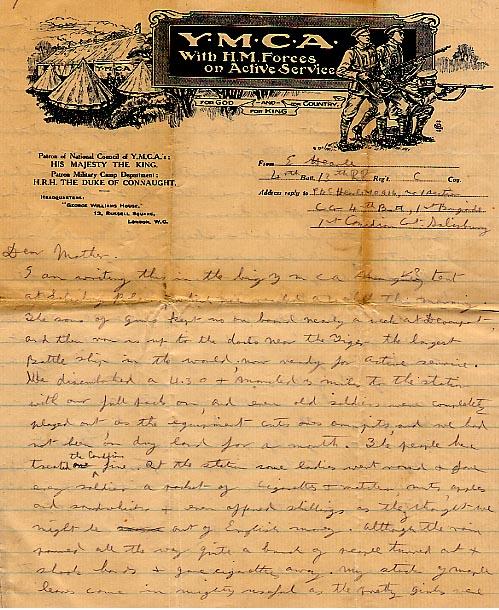 Y.M.C.A.
With H.M. Forces
on Active Service
FOR GOD
AND
FOR COUNTRY
FOR KING
Patron of National Council of Y.M.C.A.'s:
HIS MAJESTY THE KING.
Patron Military Camp Department:
H.R.H. THE DUKE OF CONNAUGHT.
HEADQUARTERS:
"GEORGE WILLIAMS HOUSE,"
13, RUSSELL SQUARE,
LONDON, W.C.
From E
4th Batt. Reg't. C Coy.
Address reply to
4th Batt, 1st Brigade
1st Canadian Salisbury
Dear Mother.
I am writing this in the big Y M C A tent
at the morning
The sons of guns kept us on board nearly a week at Devonport,
and then ran us up to the docks near the Tiger the largest
Battle ship in the world, now ready for active service.
We disembarked at 4.30 + marched 3 miles to the station
with our full pack on, and even old soldiers were completely
played out as the equipment cuts ones armpits and we had
not been on dry land for a month. The people here
treated the Canadians fine. At the station some ladies went round + gave
every soldier a packet of cigarettes + matches, nuts, apples
and sandwiches + even offered shillings as they thought we
might be out of English money. Although the rain
poured all the way quite a bunch of people turned out +
shook hands + gave cigarettes away. My stock of maple
leaves came in mighty useful as the pretty girls